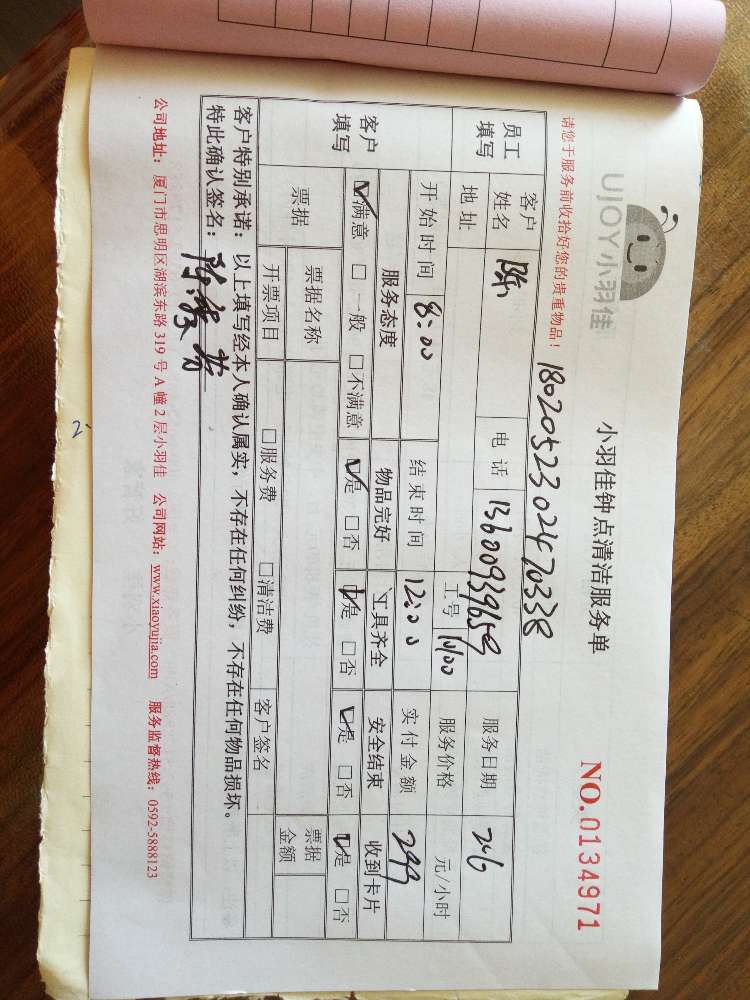 UJOY小羽佳
小羽佳钟点清洁服务单
NO.0134971
请您于服务前收拾好您的贵重物品！
1802052302470338
员工填写 客户姓名 陈 电话 13600939659 服务日期 2.6
地址 工号 服务价格 元/小时
开始时间 8:00 结束时间 12:00 实付金额 299
客户填写 服务态度 物品完好 工具齐全 安全结束 收到卡片
☑满意 □一般 □不满意 ☑是 □否 ☑是 □否 ☑是 □否 ☑是 □否
票据 票据名称 票据金额
开票项目 □服务费 □清洁费 客户签名
客户特别承诺：以上填写经本人确认属实，不存在任何纠纷，不存在任何物品损坏。
特此确认签名：
公司地址：厦门市思明区湖滨东路 319 号 A 幢 2 层小羽佳 公司网站：www.xiaoyujia.com 服务监督热线：0592-5888123